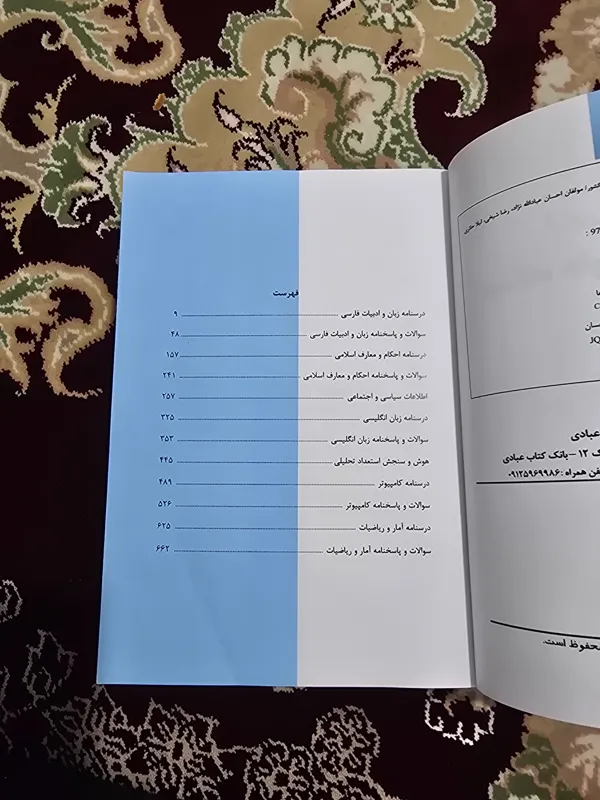 فهرست
درسنامه زبان و ادبیات فارسی ۹
سوالات و پاسخنامه زبان و ادبیات فارسی ۴۸
درسنامه احکام و معارف اسلامی ۱۵۷
سوالات و پاسخنامه احکام و معارف اسلامی ۲۴۱
اطلاعات سیاسی و اجتماعی ۲۵۷
درسنامه زبان انگلیسی ۳۲۵
سوالات و پاسخنامه زبان انگلیسی ۳۵۳
هوش و سنجش استعداد تحلیلی ۴۴۵
درسنامه کامپیوتر ۴۸۹
سوالات و پاسخنامه کامپیوتر ۵۲۶
درسنامه آمار و ریاضیات ۶۲۵
سوالات و پاسخنامه آمار و ریاضیات ۶۶۲
کشور/ مولفان احسان عبادالله نژاد، رضا شیخی، لیلا
97 :
ها
C
سان
JQ
عبادی
ک ۱۲ – بانک کتاب عبادی
فن همراه :۰۹۱۳۵۹۶۹۹۸۶
محفوظ است.